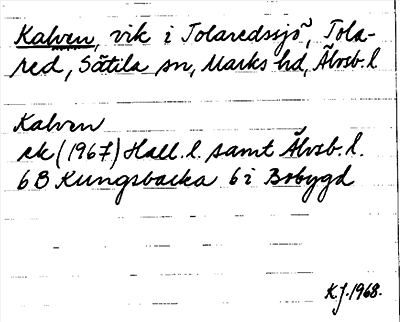 Kalven, vik i Tolaredssjö, Tola-
red, Sätila sn, Marks hd, Älvsb. l
Kalven
ek (1967) Hall. l. samt Älvsb. l.
6B Kungsbacka 6i Bobygd
K.J. 1968.